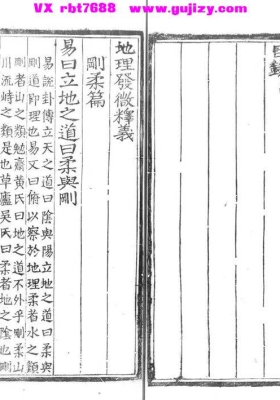 VX rbt7688 www.gujizy.com
地理發微釋義
剛柔篇
易曰立地之道曰柔與剛
易說卦傳立天之道曰陰與陽立地之道曰柔與
剛道即理也易又曰俯以察於地理柔者水之類
剛者山之類勉齋黃氏曰地之道不外乎剛柔山
川流峙之類是也草廬吳氏曰柔者地之陰也剛